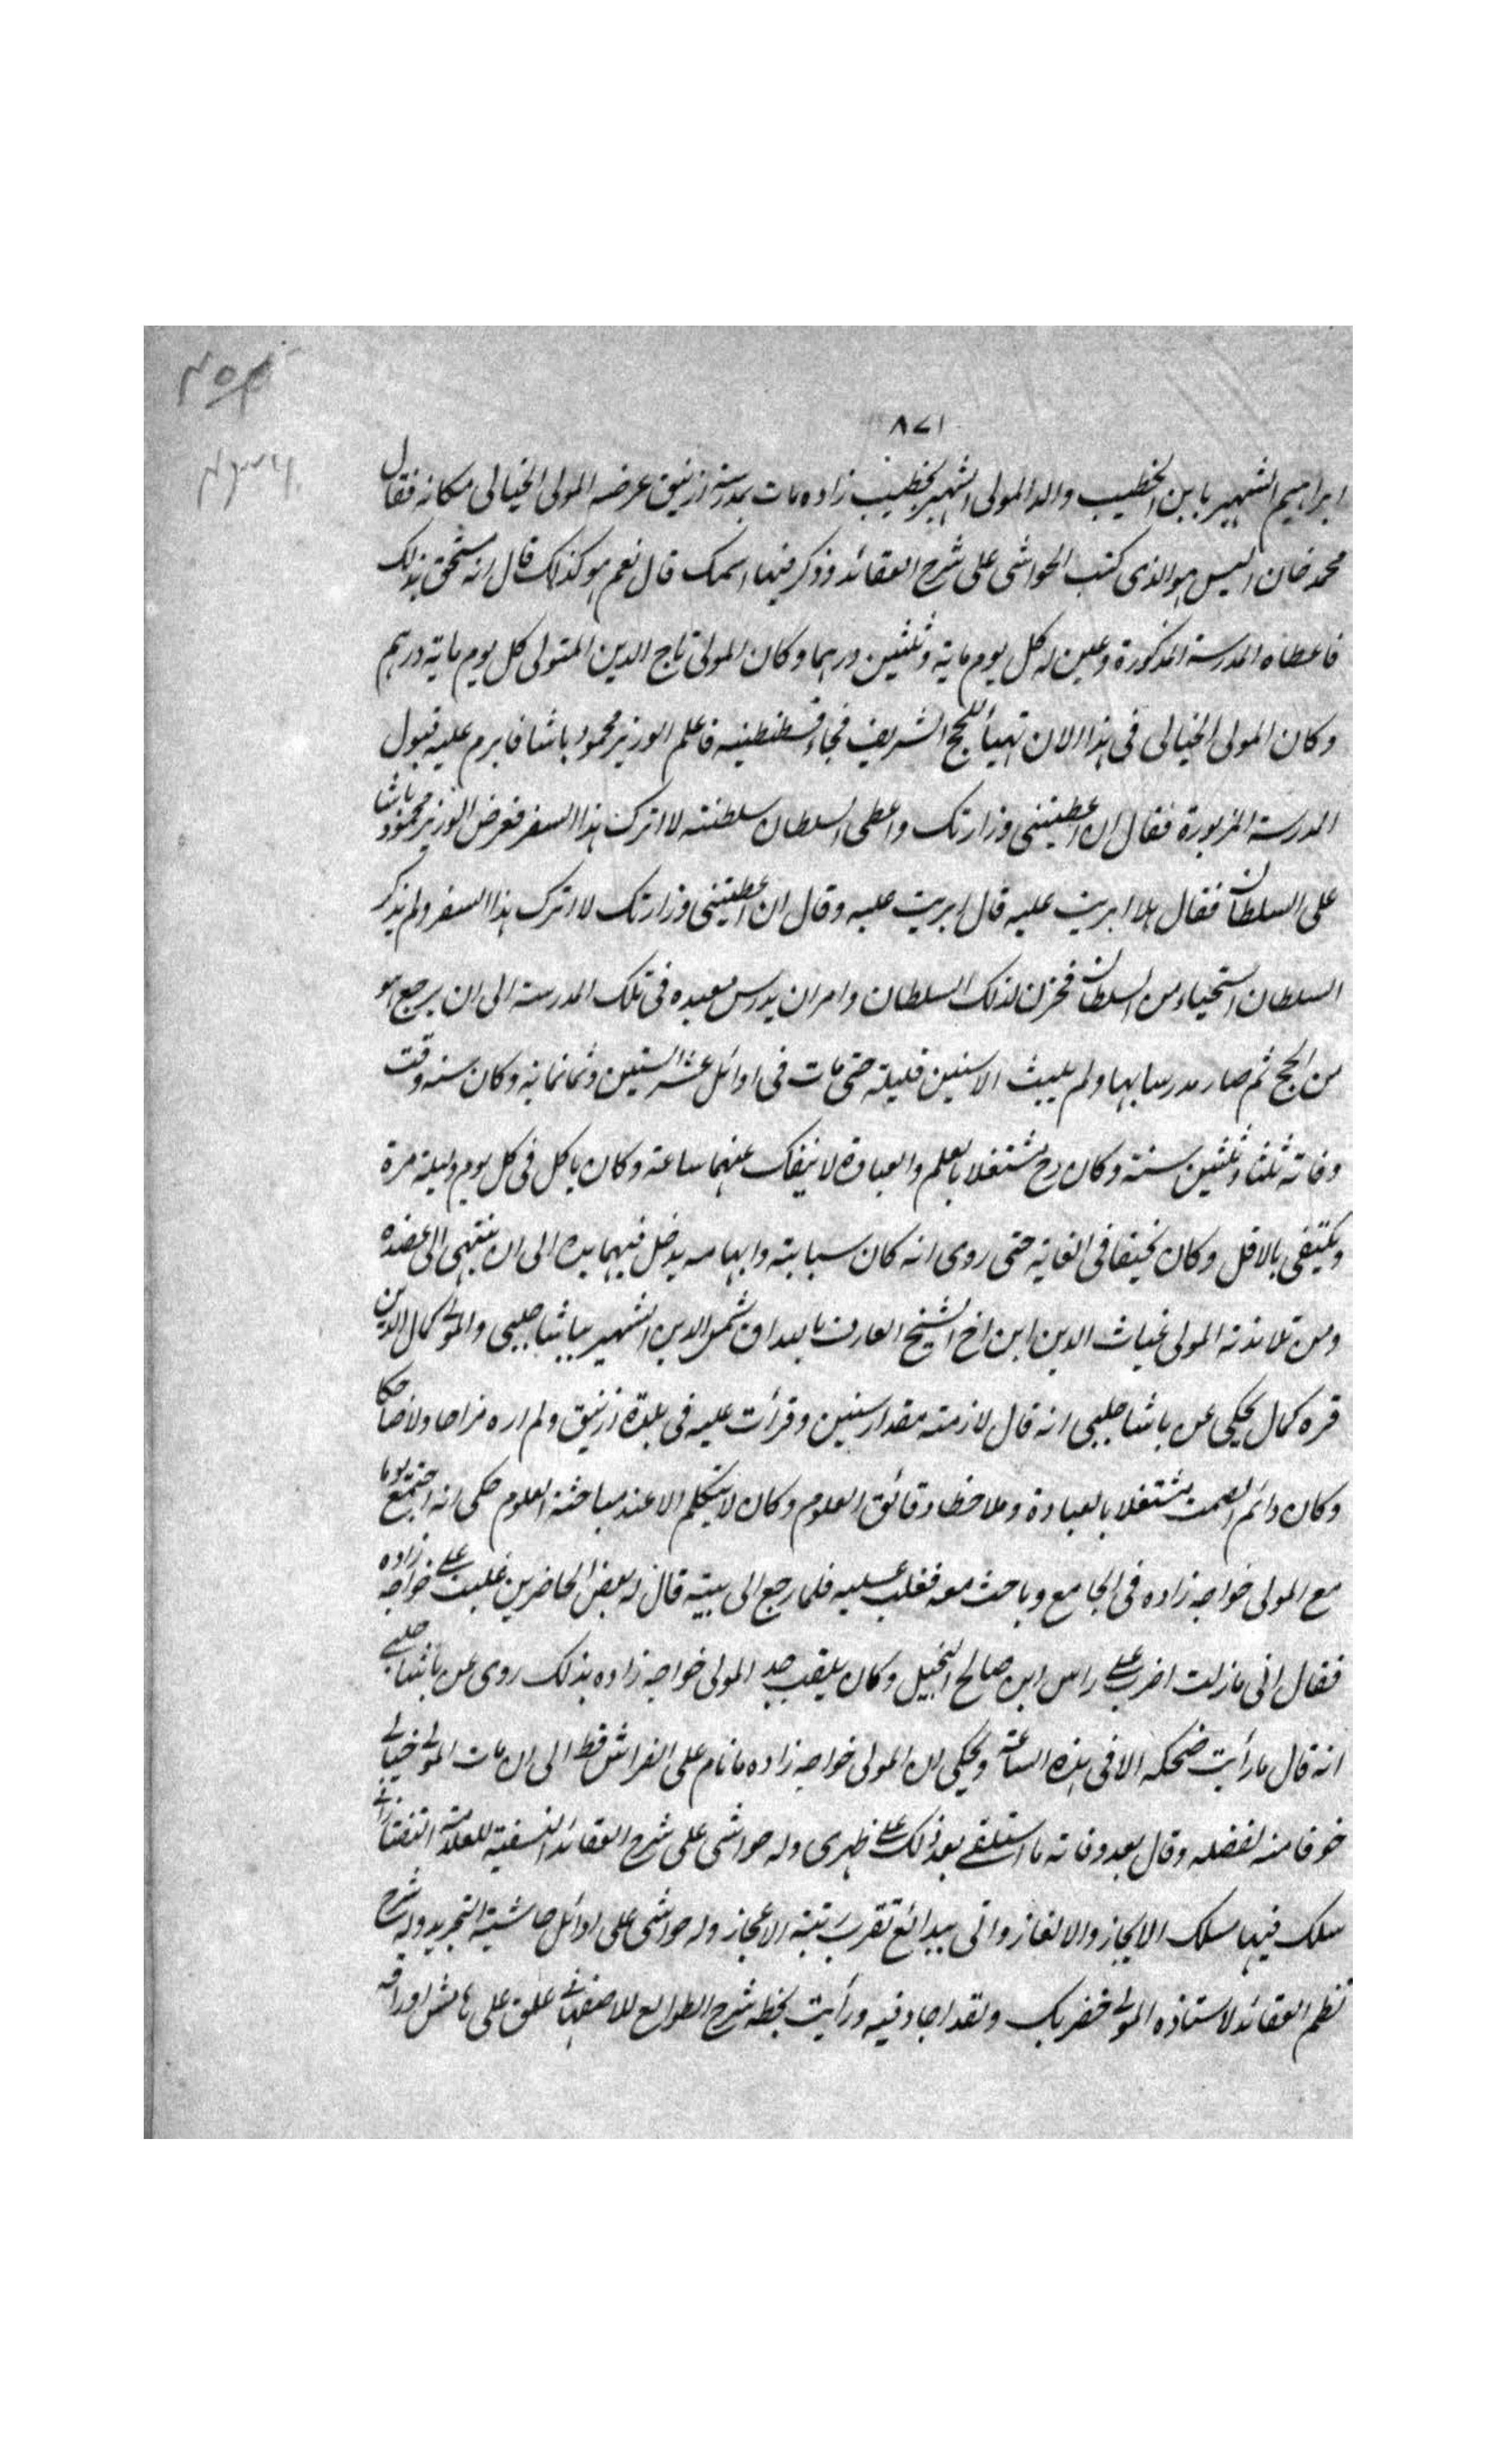 ٨٧١
ابراهيم الشهير بابن الخطيب والد المولى الشهير بخطيب زاده مات بمدرسة ازنيق عرضه المولى الخيالى مكانه فقال
محمد خان اليس هو الذى كتب الحواشى على شرح العقائد وذكر فيها اسمك قال نعم هو كذلك قال انه مستحق بذلك
فاعطاه المدرسة المذكورة وعين له كل يوم ماية وثلثين درهما وكان المولى تاج الدين المتولى كل يوم ماية درهم
وكان المولى الخيالى فى هذا الان تهيأ للحج الشريف فجاء قسطنطنيه فاعلم الوزير محمود باشا فابرم عليه قبول
المدرسة المزبورة فقال ان اعطيتنى وزارتك واعطى السلطان سلطنته لا اترك هذا السفر فعرض الوزير محمود باشا
على السلطان فقال هلا ابرمت عليه قال ابرمت عليه وقال ان اعطيتنى وزارتك لا اترك هذا السفر ولم يذكر
السلطان استحياء من السلطان فحزن لذلك السلطان وامر ان يدرس معيده فى تلك المدرسة الى ان يرجع هو
من الحج ثم صار مدرسا بها ولم يلبث الا سنين قليلة حتى مات فى اوائل عشر الستين وثمانمانه وكان سنه وقت
وفاته ثلثا وثلثين سنة وكان رح مشتغلا بالعلم والعبادة لا ينفك عنهما ساعة وكان ياكل فى كل يوم وليلة مرة
ويكتفى بالاقل وكان نحيفا فى الغاية حتى روى انه كان سبابته وابهامه يدخل فيهما يده الى ان ينتهى الى عضده
ومن تلامذته المولى غياث الدين ابن اخ الشيخ العارف بالله اق شمس الدين الشهير بباشا چلبى والمولى كمال الدين
قره كمال يحكى عن باشا چلبى انه قال لازمته مقدار سنين وقرأت عليه فى بلدة ازنيق ولم اره مزاحا ولا ضاحكا
وكان دائم الصمت مشتغلا بالعبادة وملاحظة دقائق العلوم وكان لا يتكلم الا عند مباحثة العلوم حكى انه اجتمع يوما
مع المولى خواجه زاده فى الجامع وباحث معه فغلب عليه فلما رجع الى بيته قال له بعض الحاضرين غلبت على خواجه زاده
فقال انى مازلت اضرب على راس ابن صالح البخيل وكان يلقب جد المولى خواجه زاده بذلك روى عن باشا چلبى
انه قال ما رأيت ضحكه الا فى هذه الساعة ويحكى ان المولى خواجه زاده ما نام على الفراش قط الى ان مات المولى خيالى
خوفا منه لفضله وقال بعد وفاته ما استلقى بعد ذلك على ظهرى وله حواشى على شرح العقائد النسفية للعلامة التفتازانى
سلك فيها مسلك الايجاز والالغاز واتى ببدائع تقرب رتبة الاعجاز وله حواشى على اوائل حاشية التجريد وله شرح
نظم العقائد لاستاذه المولى خضر بك ولقد اجاد فيه ورأيت بخطه شرح الطوالع للاصفهانى علق على هامش اوراقه